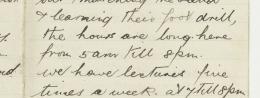 & learning their foot drill,
the hours are long here
from 5 am till 8 pm.
we have lectures five
times a week, at 7 till 8 pm